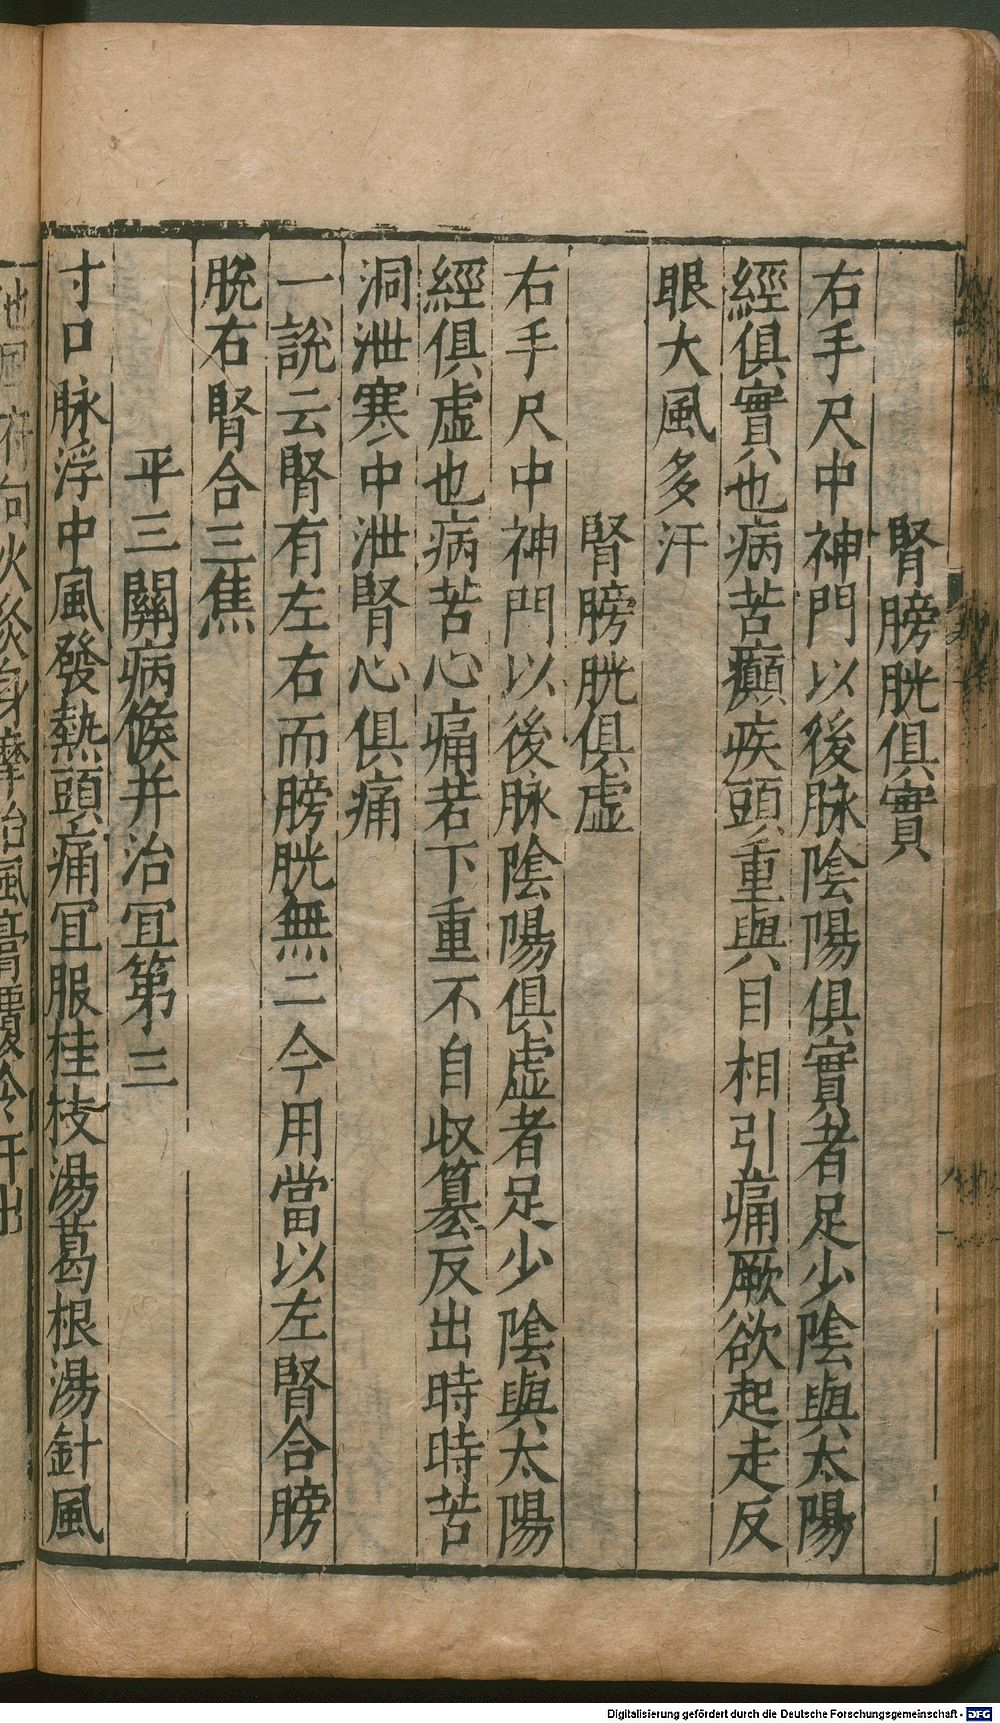 腎膀胱俱實
右手尺中神門以後脉陰陽俱實者足少陰與太陽
經俱實也病苦癲疾頭重與目相引痛厥欲起走反
眼大風多汗
腎膀胱俱虛
右手尺中神門以後脉陰陽俱虛者足少陰與太陽
經俱虛也病苦心痛若下重不自收篡反出時時苦
洞泄寒中泄腎心俱痛
一說云腎有左右而膀胱無二今用當以左腎合膀
胱右腎合三焦
平三關病候并治冝第三
寸口脉浮中風發熱頭痛冝服桂枝湯葛根湯針風
池風府向火灸身摩治風膏覆令汗出
Digitalisierung gefördert durch die Deutsche Forschungsgemeinschaft - DFG